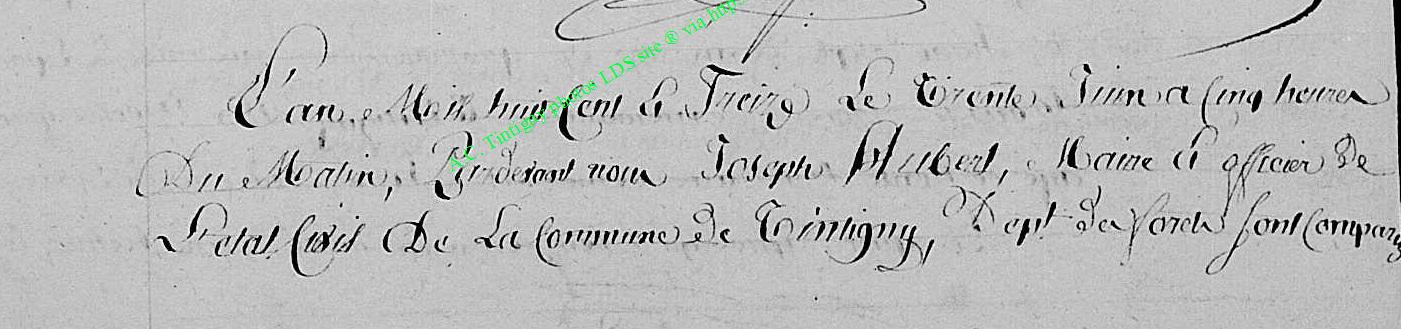 A.C. Tintigny photos LDS site ® via http
L'an Mil huit Cent Et Treize Le Trente Juin a Cinq heures
Du Matin, Pardevant nous Joseph Hubert, Maire Et officier de
L'etat Civil De La Commune de Tintigny, Dept des forets sont Comparus